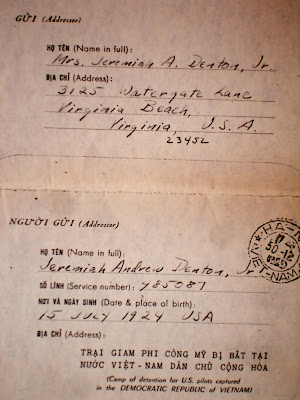 GỬI (Addressee)
HỌ TÊN (Name in full):
Mrs. Jeremiah A. Denton, Jr.
ĐỊA CHỈ (Address):
3125 Watergate Lane
Virginia Beach,
Virginia, U.S.A.
23452
NGƯỜI GỬI (Addresser)
HỌ TÊN (Name in full):
Jeremiah Andrew Denton, Jr.
SỐ LÍNH (Service number): 485087
NƠI VÀ NGÀY SINH (Date & place of birth):
15 July 1924 USA
ĐỊA CHỈ (Address):
TRẠI GIAM PHI CÔNG MỸ BỊ BẮT TẠI
NƯỚC VIỆT-NAM DÂN CHỦ CỘNG HÒA
(Camp of detention for U.S. pilots captured
in the DEMOCRATIC REPUBLIC of VIETNAM)
VIET-NAM